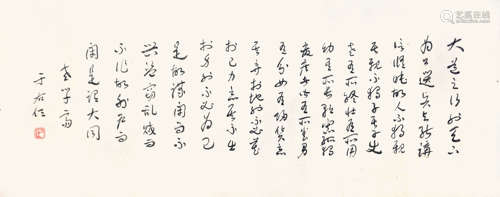 大道之行也天下
為公選賢與能講
信修睦故人不獨親
其親不獨子其子使
老有所終壯有所用
幼有所長矜寡孤獨
廢疾者皆有所養男
有分女有歸貨惡
其棄於地也不必藏
於己力惡其不出
於身也不必為己
是故謀閉而不
興盜竊亂賊而
不作故外戶而
閉是謂大同
于右任